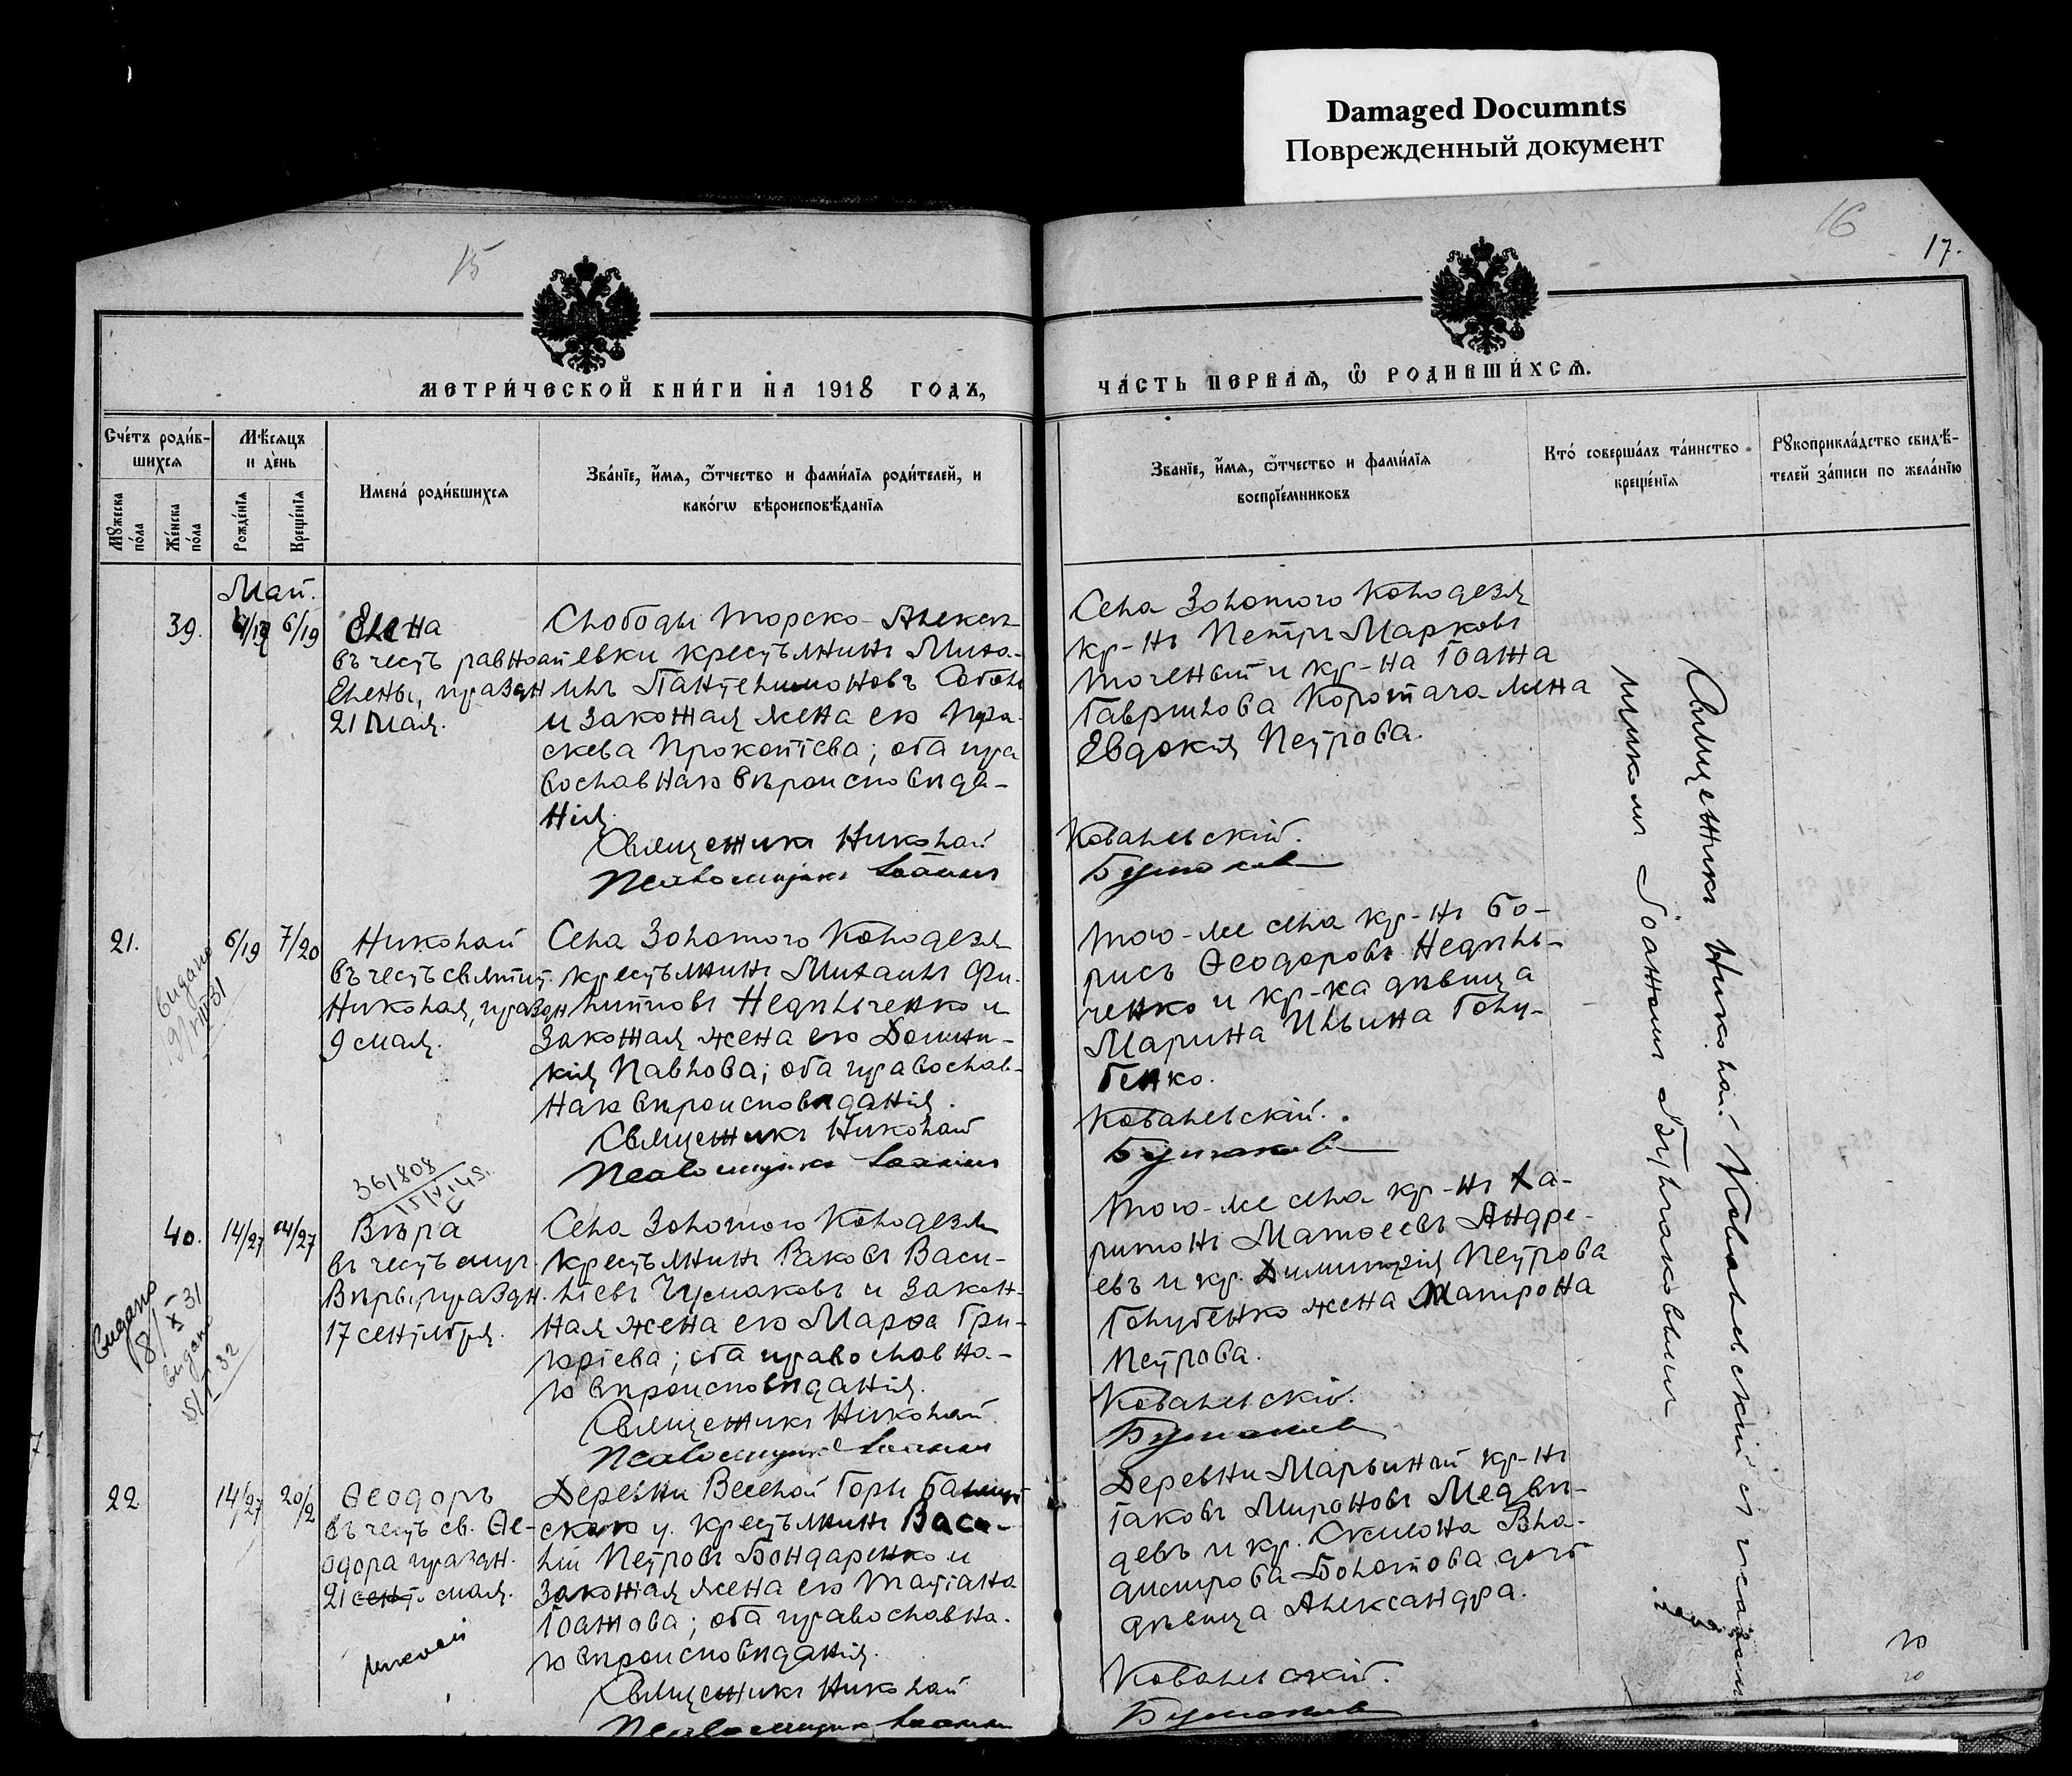 Damaged Documnts
Поврежденный документ
15
16
17.
МЕТРИ́ЧЕСКОЙ КНИ́ГИ НА 1918 ГОДЪ,
ЧА́СТЬ ПЕРВАЯ, Ѿ РОДИВШИ́ХСЯ.
Сче́тъ роди́в-
шихся
Мѣ́сяцъ
и де́нь
Мꙋжеска по́ла
Же́нска по́ла
Рожде́нїѧ
Креще́нїѧ
Имена́ роди́вшихся
Зва́нїе, и́мя, ѻ́тчество и фами́лїя роди́телей, и
како́гѡ вѣроисповѣ́данїя
Зва́нїе, и́мя, ѻ́тчество и фами́лїя
воспрїе́мниковъ
Кто́ соверша́лъ та́инство
креще́нїя
Рꙋкоприкла́дство свидѣ́-
телей за́писи по жела́нїю
Май.
39.
6/19
Елена
въ честь равноап
Елены, праздн
21 мая.
Слободы Торско-Алексе
евки крестьянинъ Миха-
илъ Пантелимоновъ
и законная жена его Пра-
скева Прокопіева; оба пра
вославнаго вѣроисповѣда-
нія.
Священникъ Николай
Псаломщикъ Іоаннъ
Села Золотого Колодезя
кр-нъ Петръ Марковъ
и кр-на Іоанна
Гаврилова жена
Евдокія Петрова.
Ковалевскій.
21.
6/19 7/20
Николай
въ честь святит.
Николая, праздн
9 мая.
Села Золотого Колодезя
крестьянинъ Михаилъ Фи-
липповъ Недѣльченко и
законная жена его Домни-
кія Павлова; оба православ-
наго вѣроисповѣданія.
Священникъ Николай
Псаломщикъ Іоаннъ
Того-же села кр-нъ Бо-
рисъ Ѳеодоровъ Недѣль-
ченко и кр-ка дѣвица
Марина Ильина Голу-
бенко.
Ковалевскій.
видано
361808
40.
14/27 14/27
Вѣра
въ честь муч.
Вѣры, праздн.
17 сентября.
Села Золотого Колодезя
крестьянинъ Іаковъ Васи-
ліевъ Чумаковъ и закон-
ная жена его Марѳа Гри-
горіева; оба православна-
го вѣроисповѣданія.
Священникъ Николай
Псаломщикъ Іоаннъ
Того-же села кр-нъ Ха-
ритонъ Матѳеевъ Андре-
евъ и кр. Петрова
Голубенко жена Матрона
Петрова.
Ковалевскій.
видано
видано
22.
14/27 20/2
Ѳеодоръ
въ честь св. Ѳе-
одора праздн.
21 сент. мая.
Деревни Веселой Горы
у. крестьянинъ Васи-
лій Петровъ Бондаренко и
законная жена его Татіана
Іоаннова; оба православна-
го вѣроисповѣданія.
Священникъ Николай
Псаломщикъ Іоаннъ
Деревни Марьиной кр-нъ
Іаковъ Мироновъ Медвѣ-
девъ и кр. Вла-
димірова Болотова дочь
дѣвица Александра.
Ковалевскій.
Священникъ Николай Ковалевскій съ псалом
щикомъ Іоанномъ